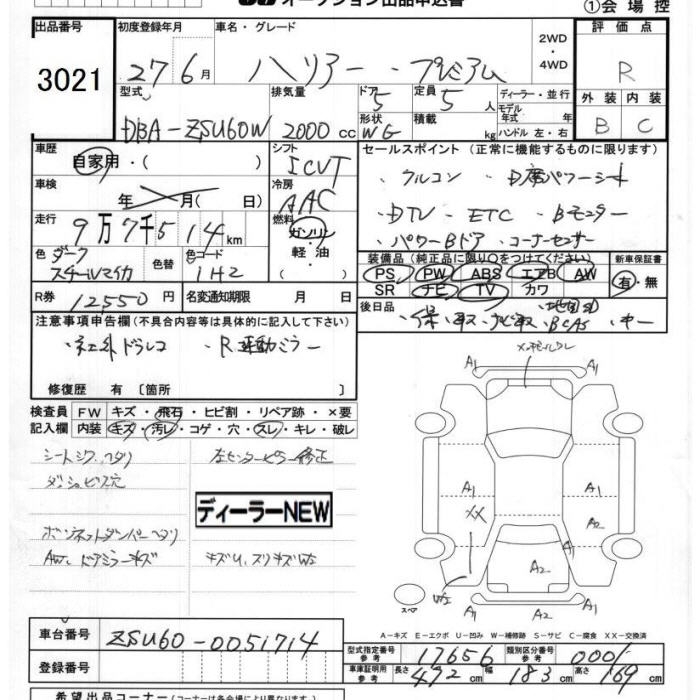 オークション出品申込書 ①会場控
出品番号 初度登録年月 車名・グレード 2WD・4WD 評価点
3021 27年6月 ハリアー・プレミアム R
型式 排気量 ドア 定員 ディーラー・並行 外装 内装
DBA-ZSU60W 2000cc 5 5人 モデル年式 年 B C
形状 WG 積載 kg ハンドル 左・右
車歴 シフト セールスポイント（正常に機能するものに限ります）
自家用・( ) ICVT ・クルコン ・D席パワーシート
車検 年 月( 日) 冷房 AAC ・DTV ・ETC ・Bモニター
走行 9万7千514km 燃料 ガソリン・軽油( ) ・パワーBドア ・コーナーセンサー
色 ダークスチールマイカ 色替 色コード 1H2 装備品（純正品に限り○をつけてください） 新車保証書
PS PW ABS エアB AW 有・無
SR ナビ TV カワ
R券 12550円 名変通知期限 月 日 後日品
注意事項申告欄（不具合内容等は具体的に記入して下さい）
・社外ドラレコ ・R連動ミラー
修復歴 有 〔箇所 〕
検査員 FW キズ・飛石・ヒビ割・リペア跡・×要
記入欄 内装 キズ・汚レ・コゲ・穴・スレ・キレ・破レ
シートシワ、ヘタリ 左センターピラー修正
ダッシュビス穴
ディーラーNEW
ボンネットダンパーヘタリ
AW、ドアミラーキズ キズU、スリキズW2
A1 A1
A1 A1
XX A2
A1
W2 A2
A1 A1
スペア
A-キズ E-エクボ U-凹み W-補修跡 S-サビ C-腐食 XX-交換済
車台番号 ZSU60-0051714
型式指定番号 参考 17656 類別区分番号 参考 0001
登録番号 車庫証明用 参考 長さ 472cm 幅 183cm 高さ 169cm
希望出品コーナー（コーナーは各会場により異なります）